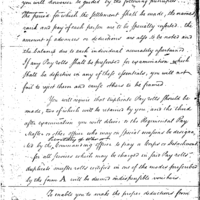 you will discover & guided by the following principles.
The period for which the settlement shall be made, the number,
rank and pay of each person are to be specially applied, the
amount of advances or deductions are also to be noted and
the balance due to each individual accurately ascertained.
If any Pay rolls shall be presented for examination which
shall be defective in any of these essentials, you will not
fail to reject them and cause others to be framed.
You will require that duplicate Pay rolls should be
made, one of which will be retained by you, and the third
after examination you will deliver to the Regimental Pay
Master or other officer who may be
by the Commanding Officer to pay a Corps or Detachment.
for all services which may be charged in such Pay rolls
duplicate muster rolls certified in one of the modes prescribed
by the form B will be deemed indispensible vouchers.
To enable you to make the proper deductions from